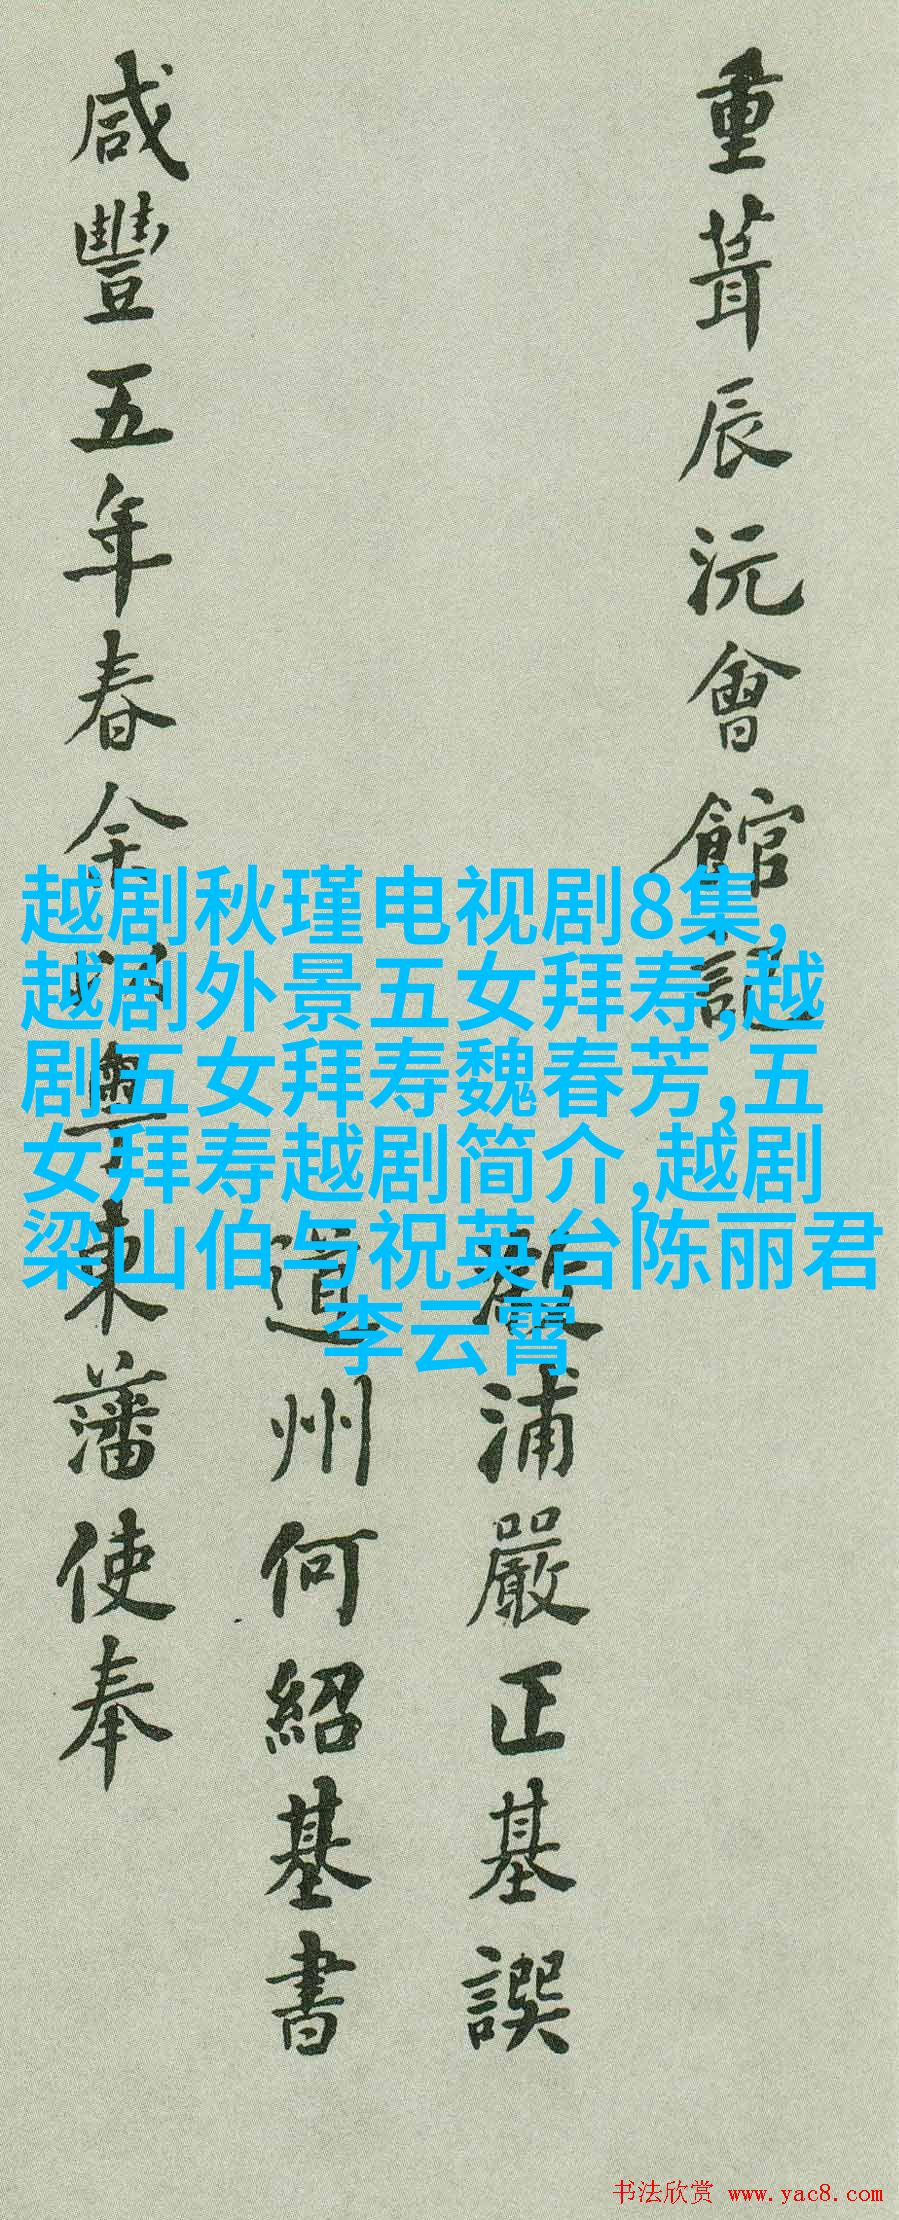 重葺辰沅會館記
溆浦嚴正基譔
道州何紹基書
咸豐五年春余以粤東藩使奉
越剧秋瑾电视剧8集,
越剧外景五女拜寿,越
剧五女拜寿魏春芳,五
女拜寿越剧简介,越剧
梁山伯与祝英台陈丽君
李云霄
书法欣赏 www.yac8.com